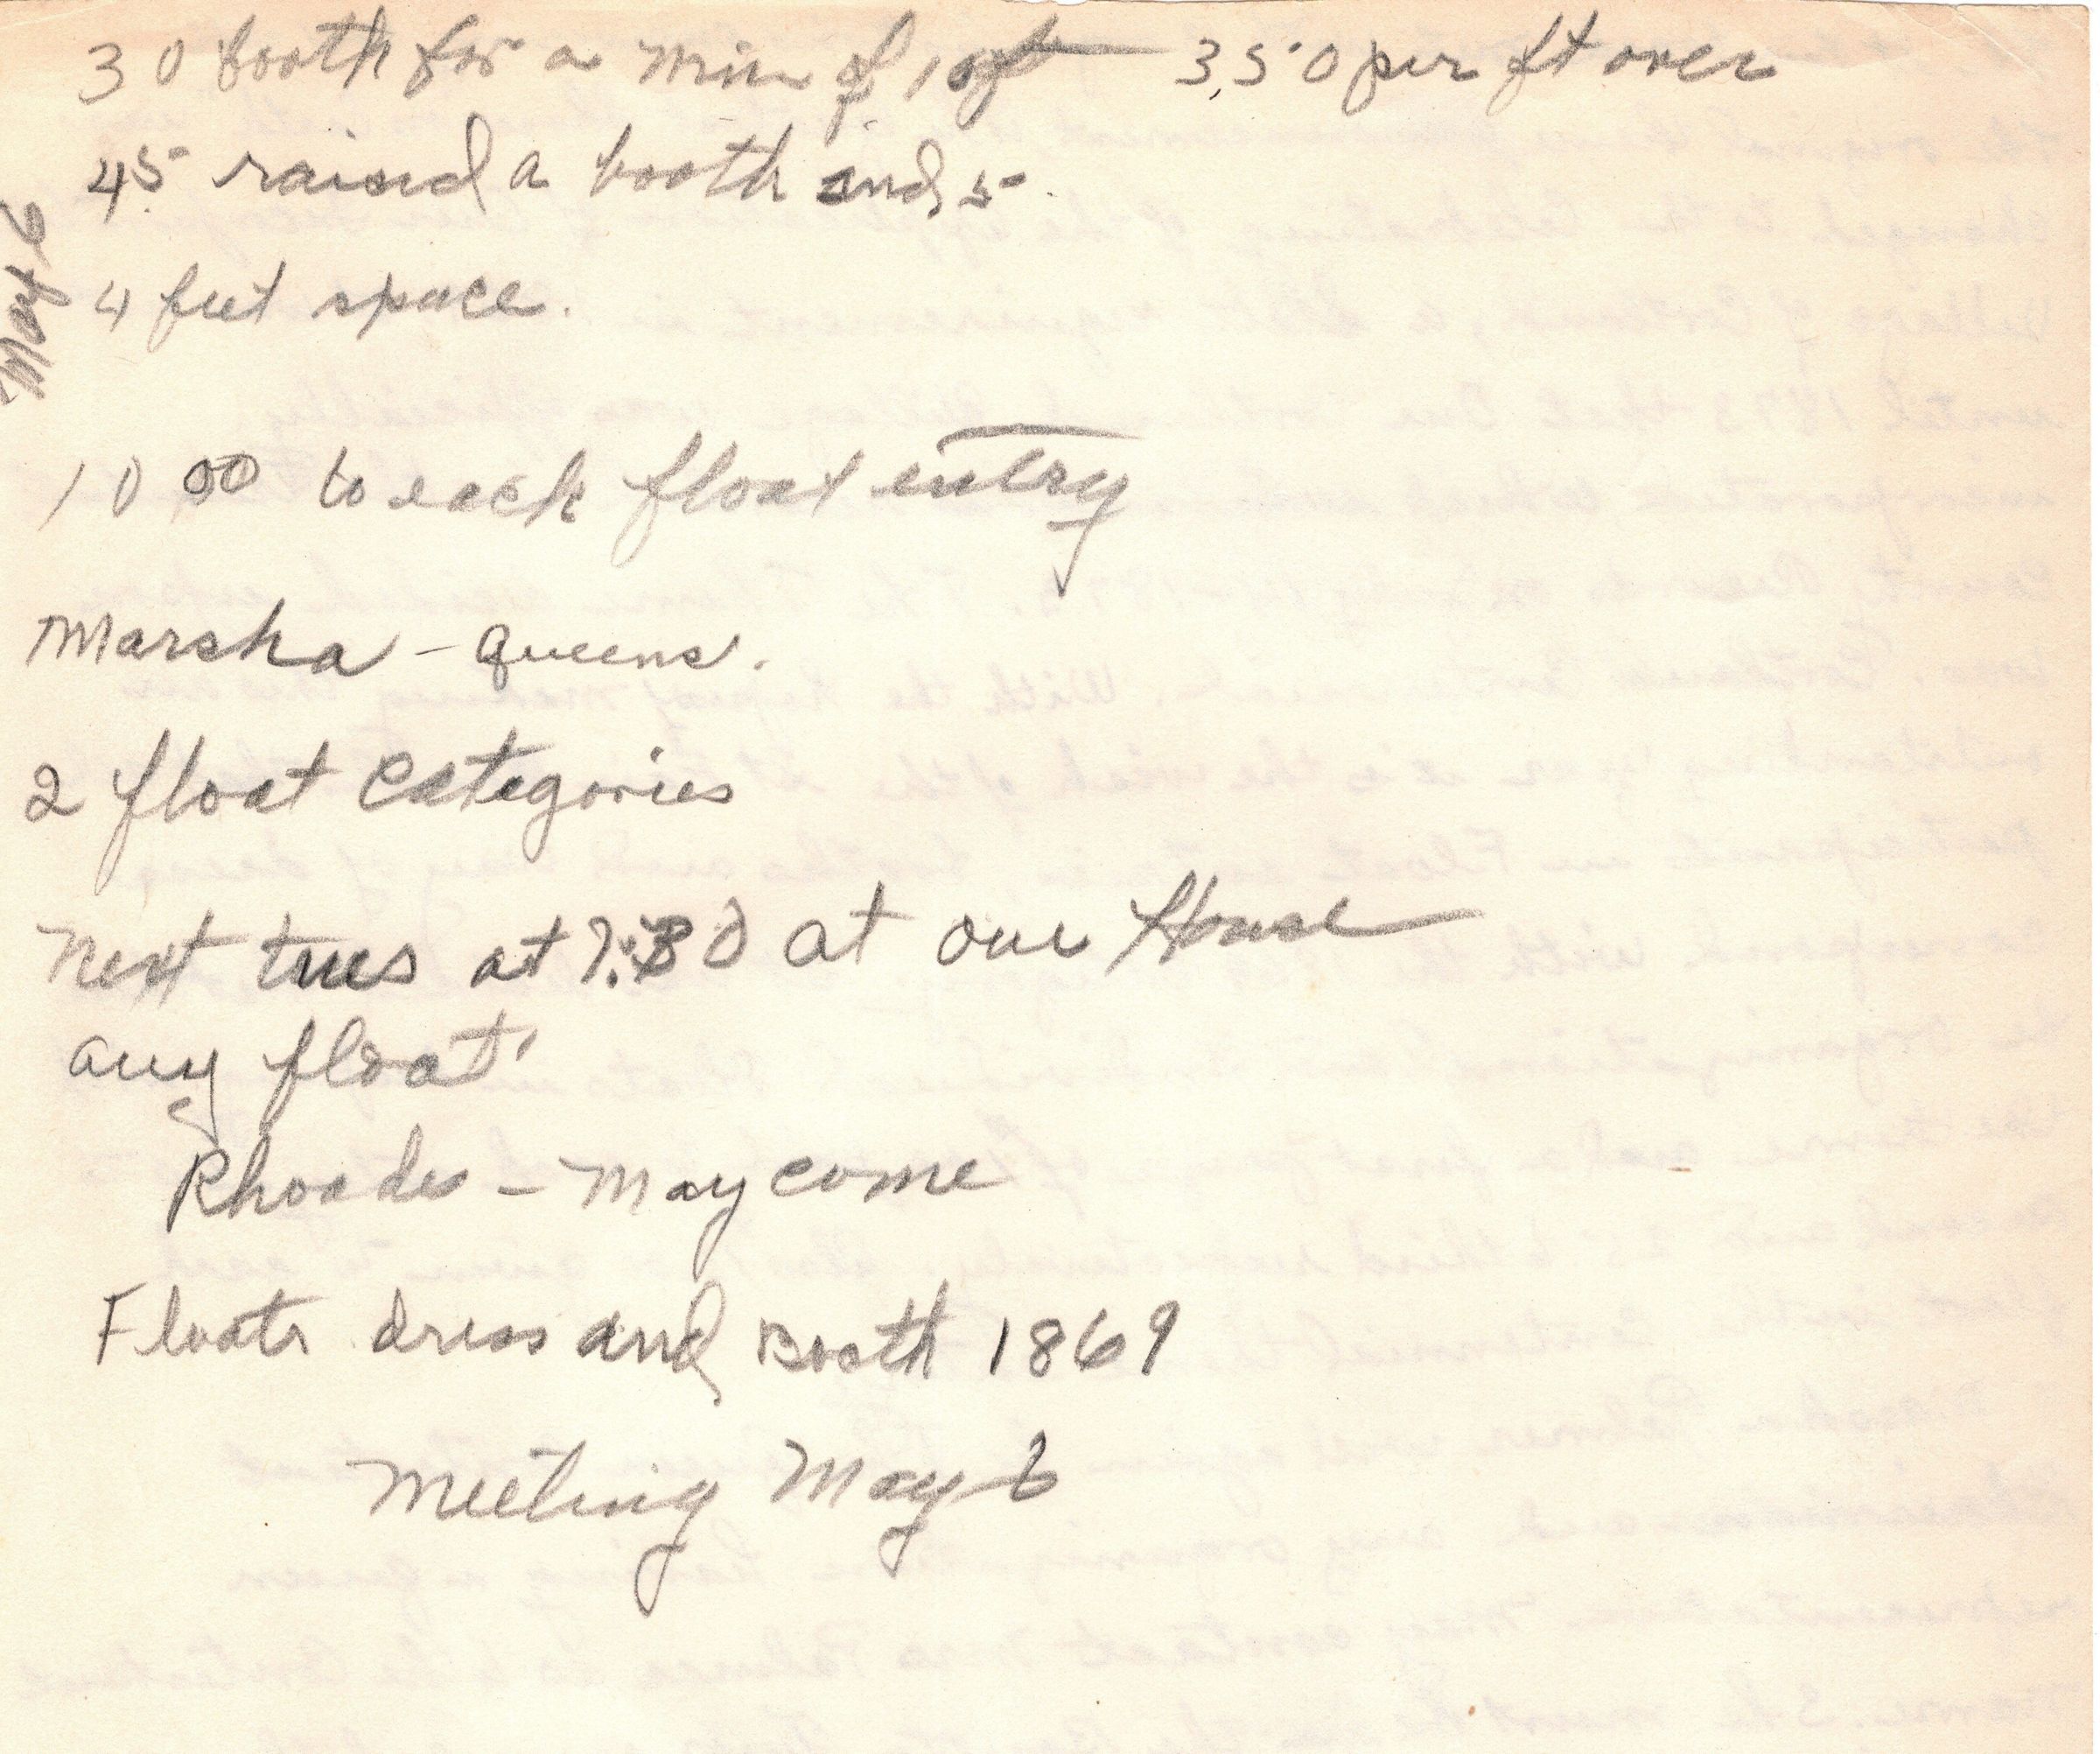 30 booth for a min of 10ft 3.50 per ft over
45 raised a booth and 5.
4 feet space.
May 6
10 00 to each float entry
Marsha - Queens.
2 float Categories
Next tues at 7:30 at our House
any float
Rhoades - May come
Floats dress and Booth 1869
Meeting May 6